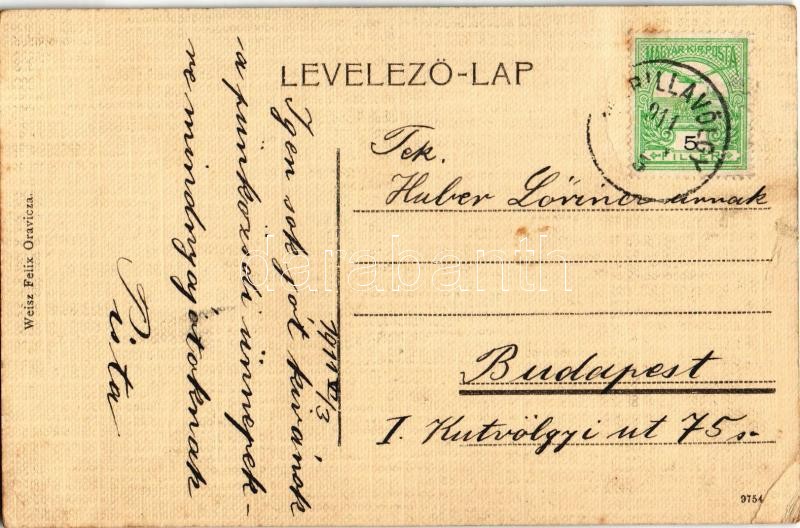 LEVELEZŐ-LAP
MAGYAR KIR. POSTA
5
FILLÉR
911
Tek.
Huber Lőrincz urnak
Budapest
I. Kutvölgyi ut 75 sz
1911 VI/3
Igen sok jót kivánok
a pünközsdi ünnepek-
re mindnyajatoknak
Pista
Weisz Felix Oravicza.
9754
darabanth